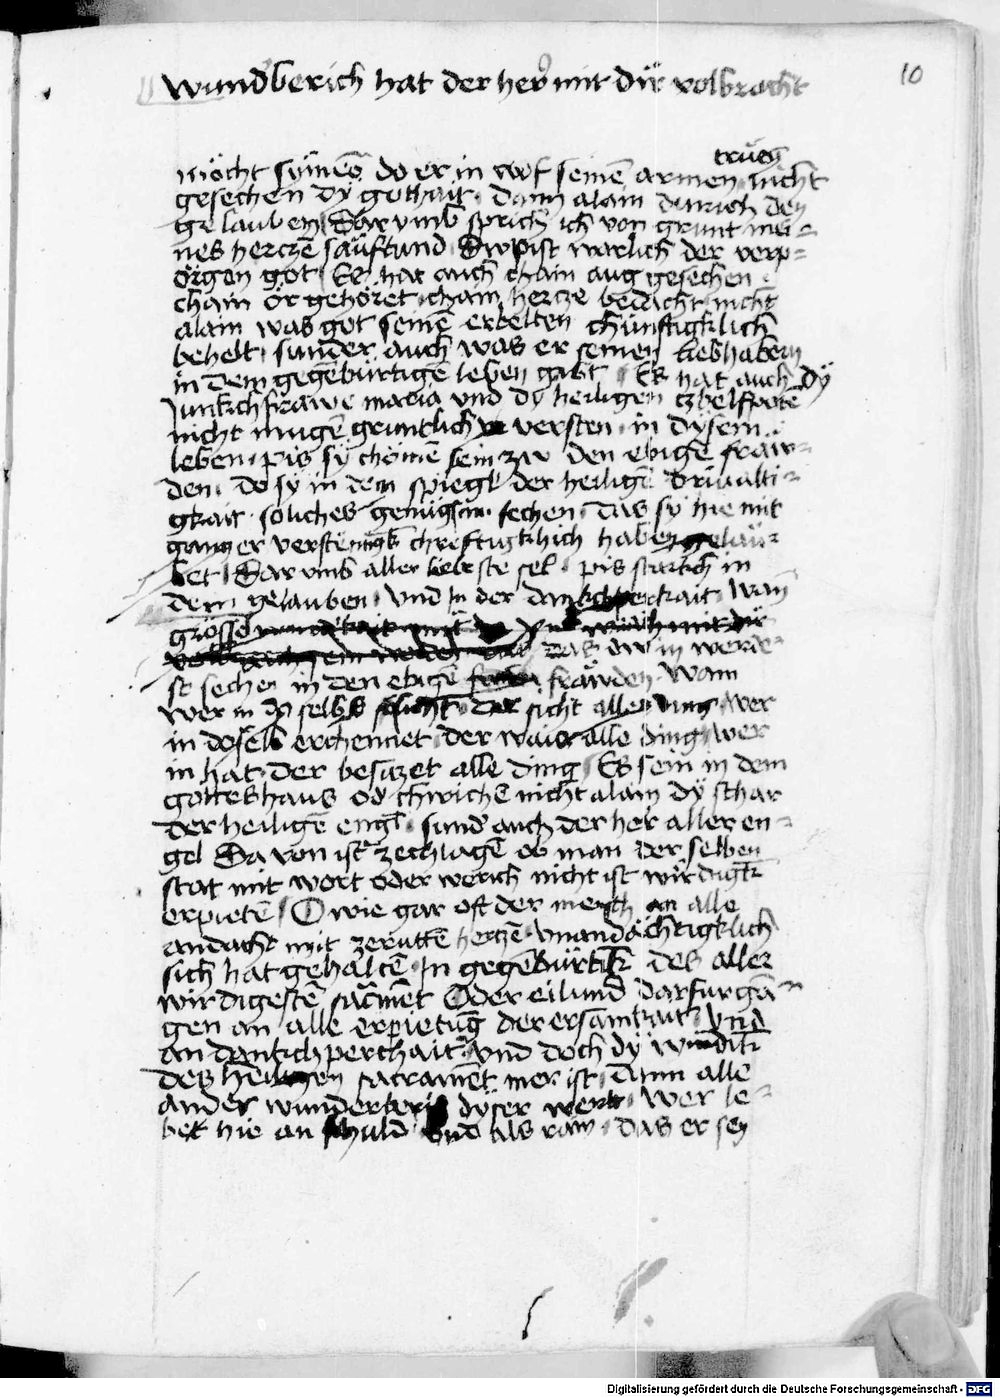 10
wund'berich hat der her mit dir volbracht
trueg
möcht symeō do er in auf seinē armen nicht
gesechen dy gothait · dann alain durich den
gelauben Dar vmb sprich ich von grunt mei=
nes herczē säuftund Dw pist warlich der verp=
örgen got Es hat auch chain aug gesechen
chain ör gehöret · chain hercze bedacht nicht
alain was got seinē erbelten chunftigklich
behelt · sunder auch was er seinen liebhabern
in dem gegēburtigē leben gibt Es hat auch dy
Junkchfrawe maria vnd dy heiligen czbelfpotē
nicht mugē gruntlich versten · in dysem
leben · pis sy chömē sein zw den ebigē fräw=
den · do sy in dem spiegl der heiligē driualti=
gkait · soliches genügsm sechen · das sy hie mit
ganczer chreftigklich haben gelau=
bet Dar vmb aller liebste sel · pis starkch in
dem gelauben · vnd in der dankchperkait wan
grösse
das dw in werde
st sechen in den ebigē fräwden · Wann
wer in do selbs sicht der sicht alle ding wer
in doselb erchennet · der wais alle ding wer
in hat · der besiczet alle ding Es sein in dem
gotteshaus od' chirichē nicht alain dy schar
der heiligē engl · sund' auch der her aller en=
gel Da von ist zechlagē do man der selben
stat mit wort oder werich nicht ist wirdigkt
erpietē O wie gar oft der mensch an alle
andacht mit zerutē herczē vnandächtigklich
sich hat gehaltē in gegēbürtikt des aller
wirdigestē sacmēt Oder eilund darfur gā=
gen an alle erpietūg der ersamkait vnd
an dankchperchait · vnd doch dy wirdikt
des heiligen sacramēt mer ist · dann alle
ander wunderberich dyser werlt · wer le=
bet hie an schuld vnd als rain · das er sey
Digitalisierung gefördert durch die Deutsche Forschungsgemeinschaft - DFG